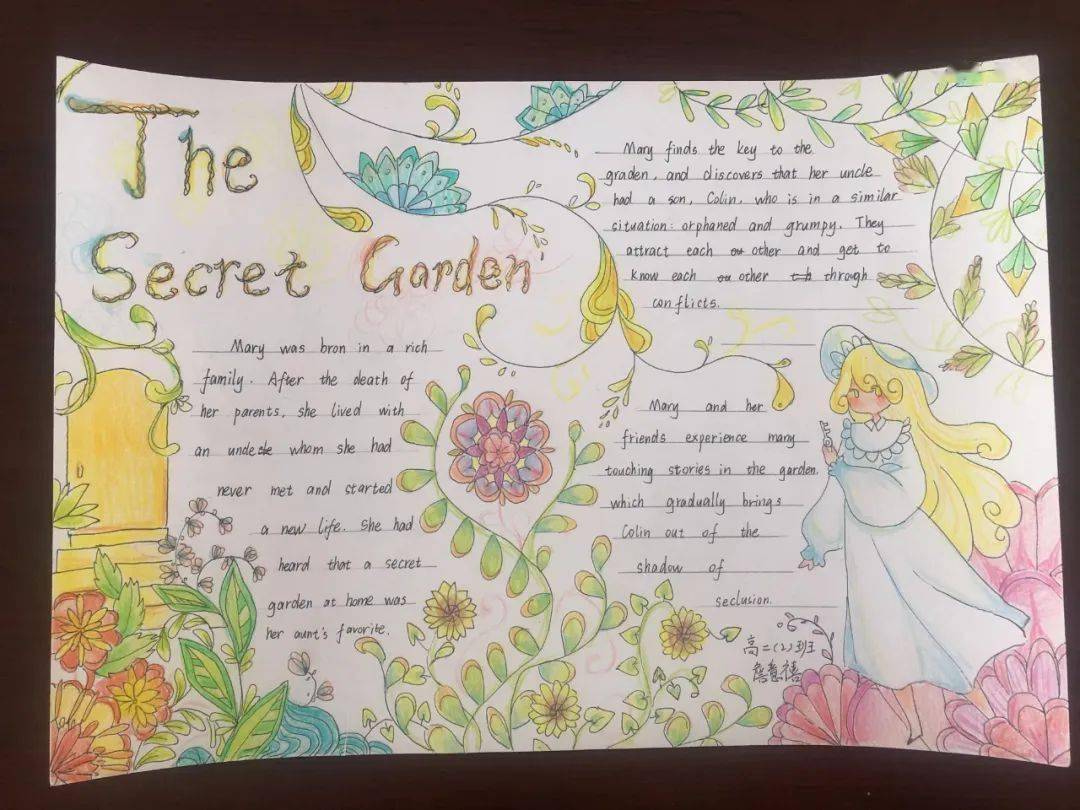 The
Secret Garden
Mary was bron in a rich
family. After the death of
her parents, she lived with
an unde whom she had
never met and started
a new life. She had
heard that a secret
garden at home was
her aunt's favorite.
Mary finds the key to the
graden, and discovers that her uncle
had a son, Colin, who is in a similar
situation: orphaned and grumpy. They
attract each other and get to
know each other through
conflicts.
Mary and her
friends experience many
touching stories in the garden,
which gradually brings
Colin out of the
shadow of
seclusion.
高二(2)班